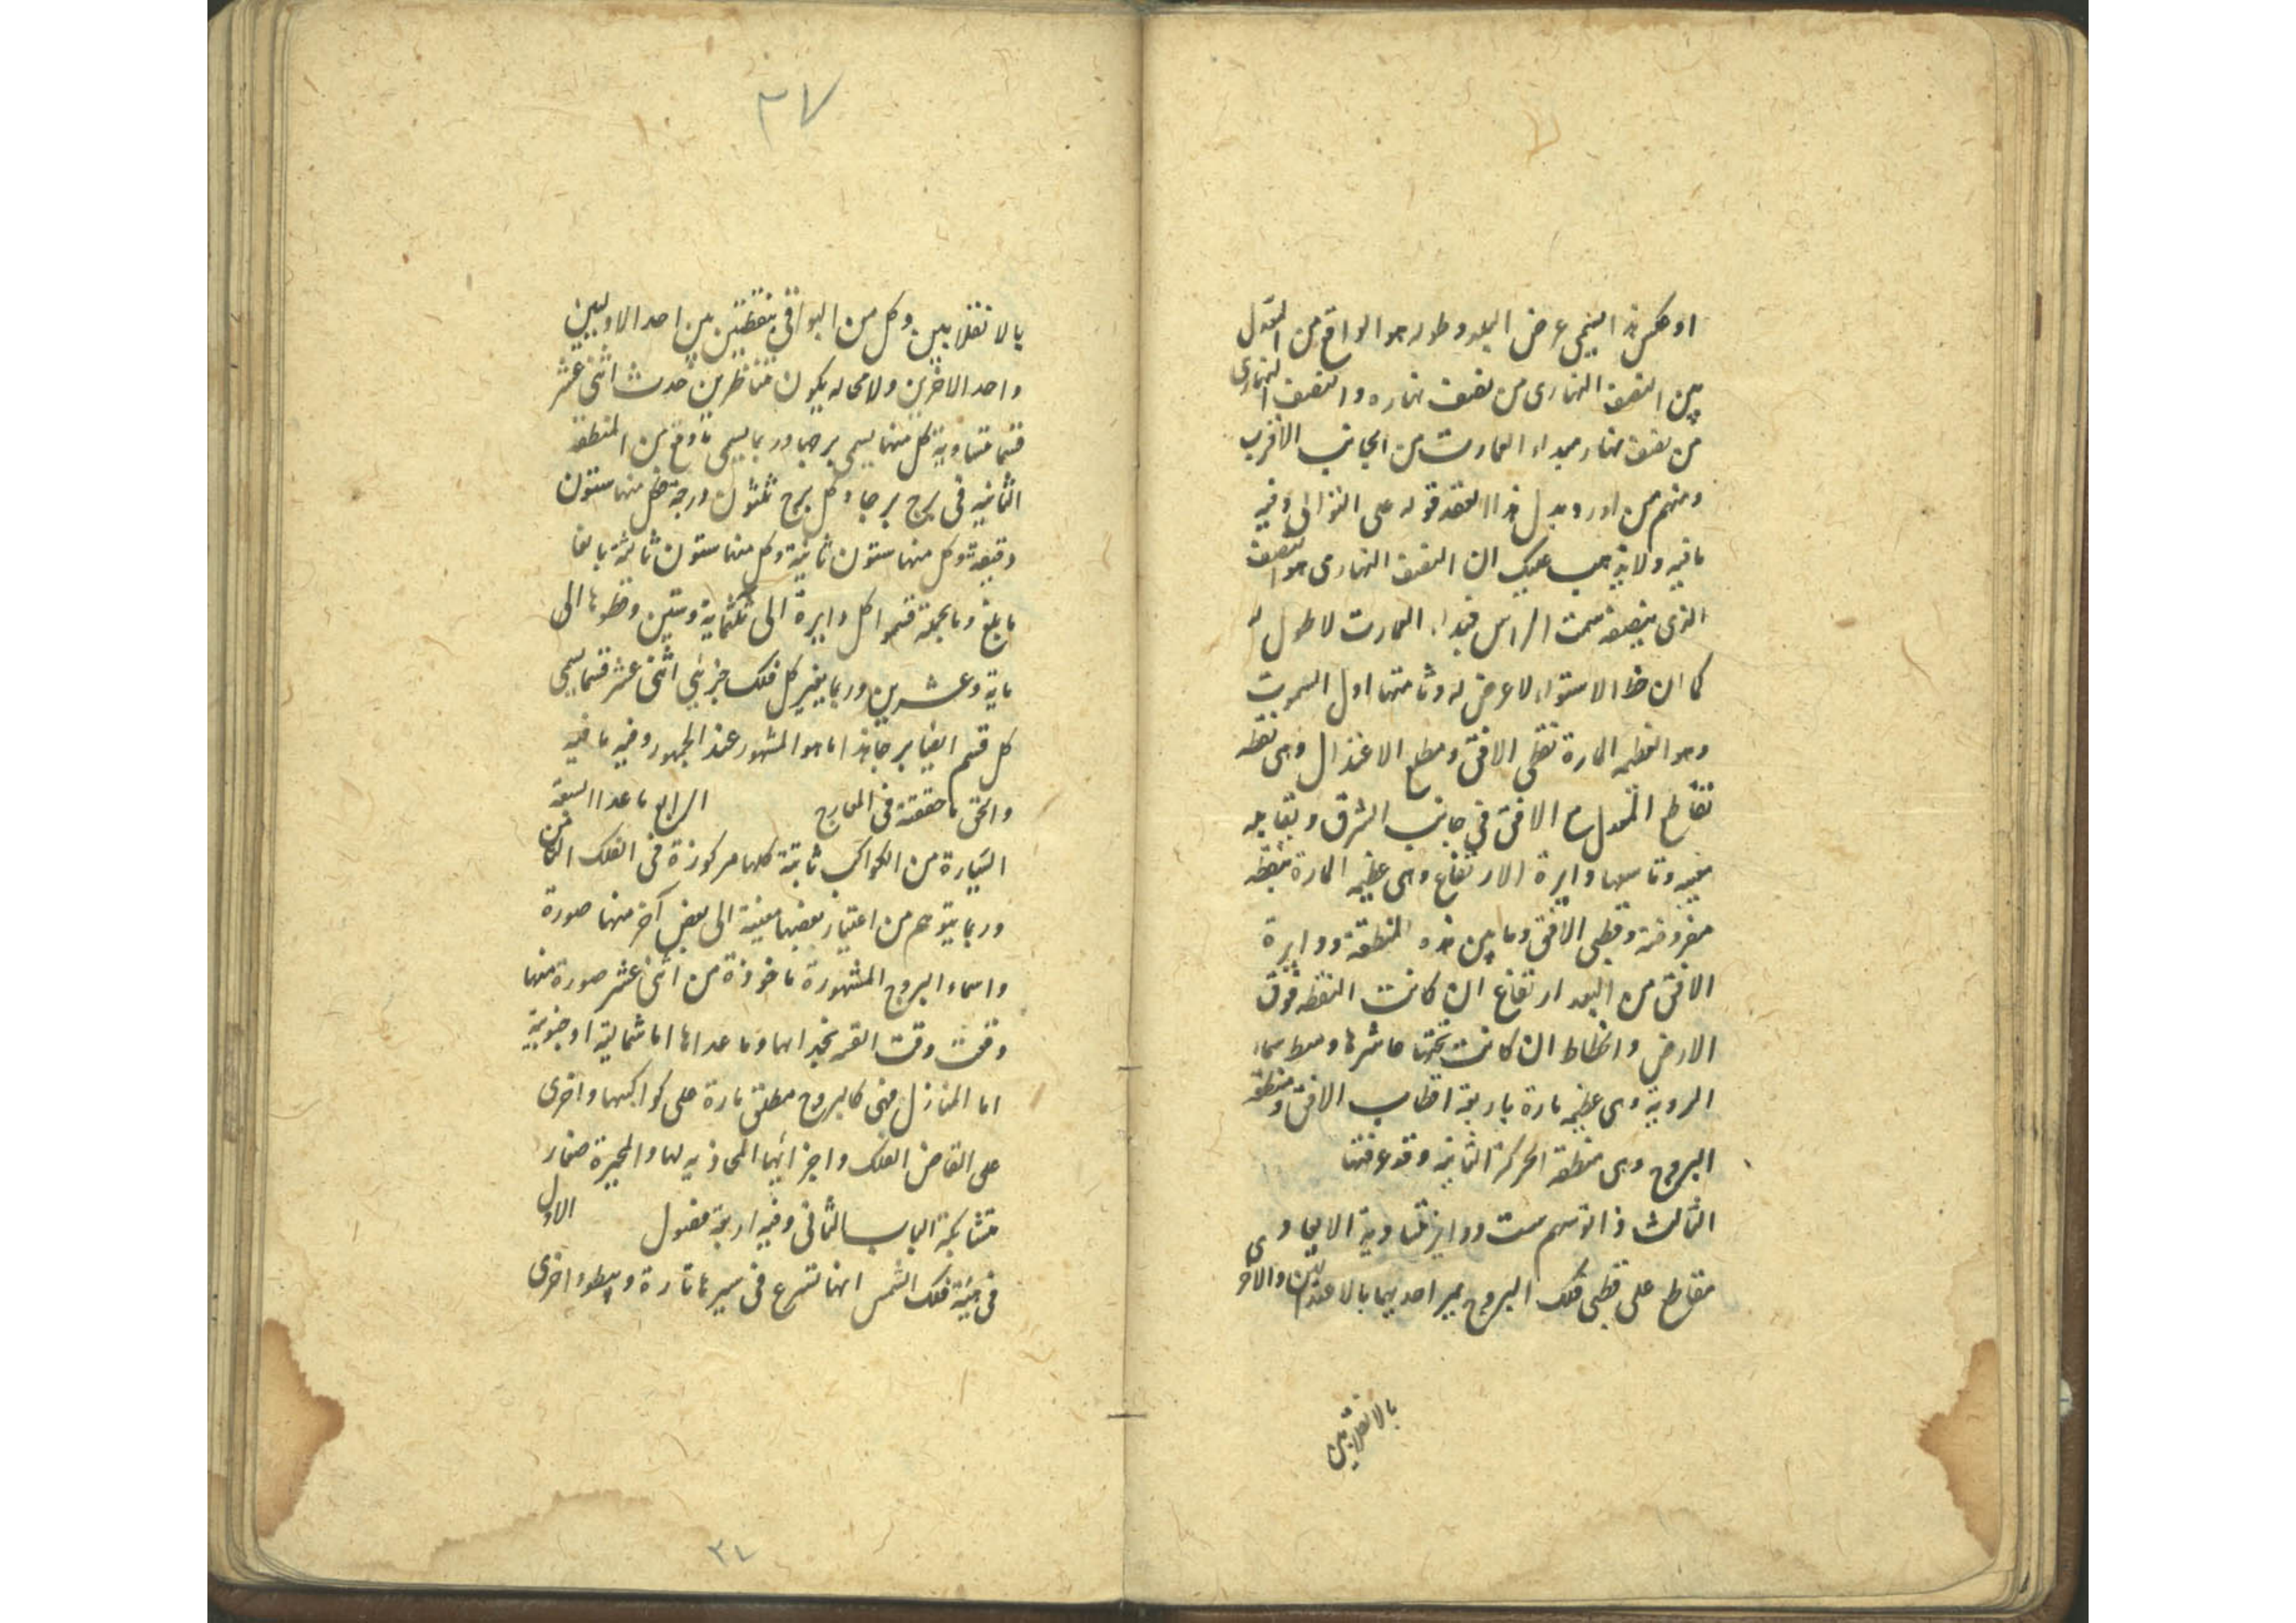 او عكس هذا يسمى عرض البلد وطوله هو الواقع من المعدل
بين النصف النهارى من نصف نهاره والنصف النهارى
من نصف نهار مبداء العمارت من الجانب الاقرب
ومنهم من اورد بدل هذا العقد قوله على التوالى وفيه
ما فيه ولا يذهب عليك ان النصف النهارى هو النصف
الذى ينصفه سمت الراس فمبداء العمارت لا طول له
كما ان خط الاستواء لا عرض له وثامنتها اول السموت
وهو العظيمه المارة بقطبى الافق ومطلع الاعتدال وهى نقطه
تقاطع المعدل مع الافق فى جانب الشرق ويقابله
مغيبه وتاسعها دايرة الارتفاع وهى عظيمه المارة بنقطه
مفروضة وقطبى الافق وما بين هذه النقطة ودايرة
الافق من البعد ارتفاع ان كانت النقطه فوق
الارض وانحطاط ان كانت تحتها عاشرها وسط سماء
الروية وهى عظيمه مارة باربعة اقطاب الافق ومنطقه
البروج وهى منطقة الحركة الثانية وقد عرفتها
الثالث اذا توهم ست دواير متساوية الابعاد
متقاطع على قطبى فلك البروج يمر احديها بالاعتدالين والاخرى
بالانقلابين
٣٧
بالانقلابين وكل من البواقى بنقطتين بين احد الاوليين
واحد الاخرين ولا محاله يكون متناظرين حدث اثنى عشر
قسما متساوية كل منها يسمى برجا وربما يسمى ما وقع من المنطقة
الثانيه فى برج برجا وكل برج ثلثون درجة كل منها ستون
دقيقة وكل منها ستون ثانية وكل منها ستون ثالثة بالغا
ما بلغ وبالجملة قسموا كل دايرة الى ثلثماية وستين وقطرها الى
ماية وعشرين وربما يعتبر كل فلك جزئى اثنى عشر قسما يسمى
كل قسم ايضا برجا هذا ما هو المشهور عند الجمهور وفيه ما فيه
والحق ما حققته فى المعارج الرابع ما عدا السبعة
السيارة من الكواكب ثابتة كلها مركوزة فى الفلك الثامن
وربما يتوهم من اعتبار بعضها معينة الى بعض آخر منها صورة
واسماء البروج المشهورة ماخوذة من اثنى عشر صورة منها
وقعت وقت القسمة بحذائها وما عداها اما شمالية او جنوبية
اما المنازل فهى كالبروج مطلق تارة على كواكبها واخرى
على القاض الفلك واجزائها المحاذيه لها والمجرة صغار
متشابكة الباب الثانى وفيه اربعة فصول الاول
فى هيئة فلك الشمس انها تسرع فى سيرها تارة ويبطوء اخرى
٣٧